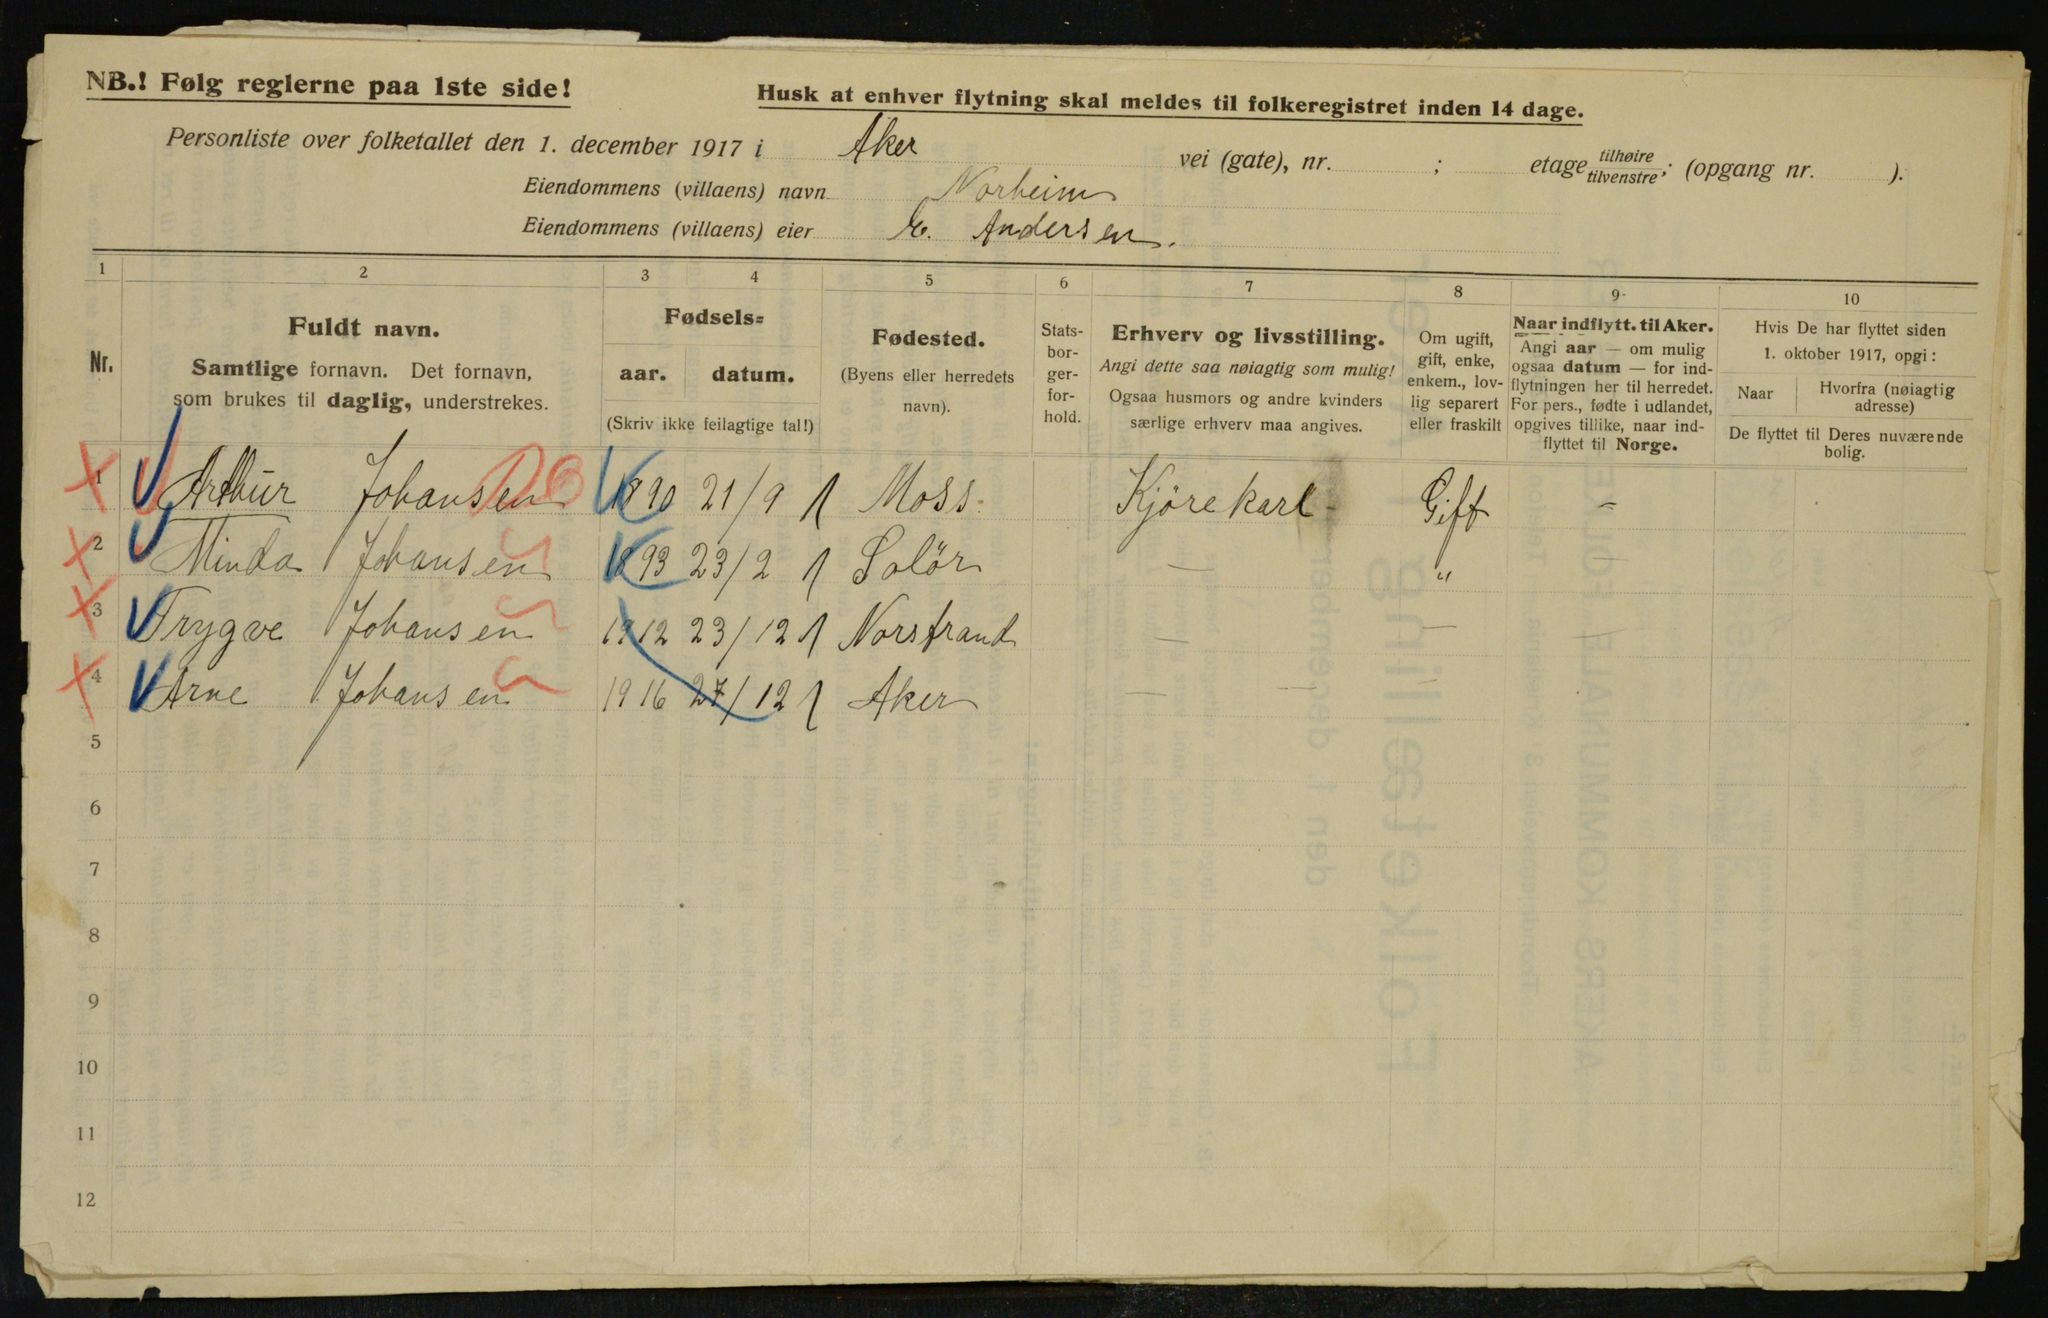 NB.! Følg reglerne paa 1ste side!
Husk at enhver flytning skal meldes til folkeregistret inden 14 dage.
Personliste over folketallet den 1. december 1917 i Aker vei (gate), nr. ; etage tilhøire tilvenstre; (opgang nr. ).
Eiendommens (villaens) navn Norheim
Eiendommens (villaens) eier E. Andersen.
1 2 3 4 5 6 7 8 9 10
Nr.
Fuldt navn.
Samtlige fornavn. Det fornavn,
som brukes til daglig, understrekes.
Fødsels=
aar. datum.
(Skriv ikke feilagtige tal!)
Fødested.
(Byens eller herredets
navn).
Stats-
bor-
ger-
for-
hold.
Erhverv og livsstilling.
Angi dette saa nøiagtig som mulig!
Ogsaa husmors og andre kvinders
særlige erhverv maa angives.
Om ugift,
gift, enke,
enkem., lov-
lig separert
eller fraskilt
Naar indflytt. til Aker.
Angi aar — om mulig
ogsaa datum — for ind-
flytningen her til herredet.
For pers., fødte i udlandet,
opgives tillike, naar ind-
flyttet til Norge.
Hvis De har flyttet siden
1. oktober 1917, opgi:
Naar
Hvorfra (nøiagtig
adresse)
De flyttet til Deres nuværende
bolig.
1 Arthur Johansen 1890 21/9 Moss Kjörekarl Gift –
2 Minda Johansen 1893 23/2 Solör — „ —
3 Trygve Johansen 1912 23/12 Norstrand — — —
4 Arne Johansen 1916 27/12 Aker — — —
5
6
7
8
9
10
11
12